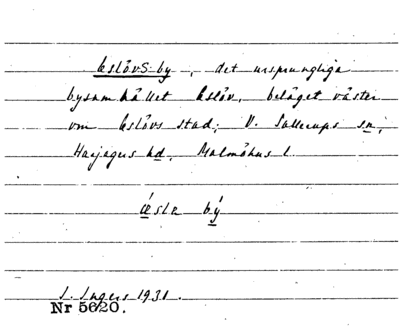 Eslövs by, det ursprungliga
bysamhället Eslöv, beläget väster
om Eslövs stad; V. Sallerups sn,
Harjagers hd, Malmöhus l.
ǽsla bý
I. Ingers 1931.
Nr 5620.